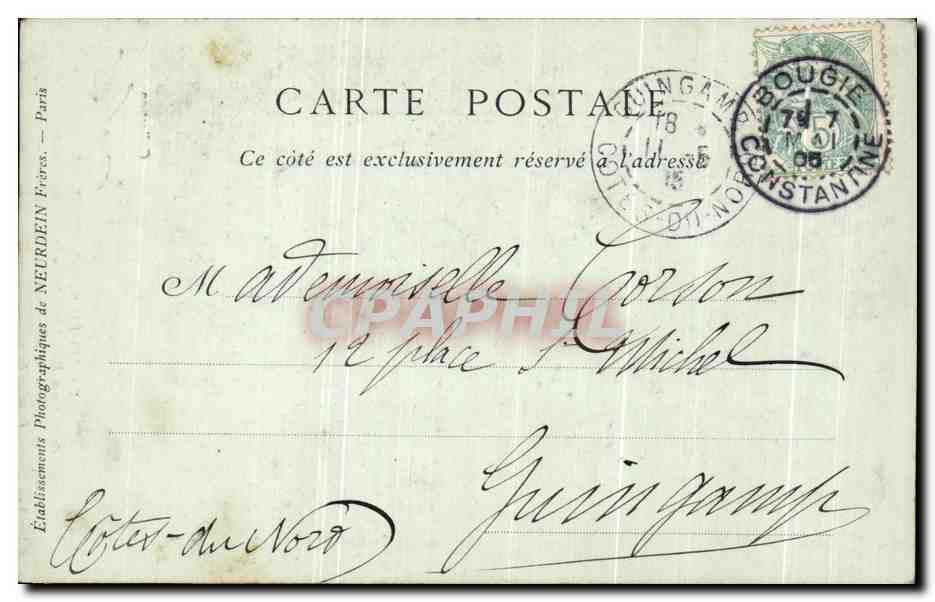 CARTE POSTALE
Ce côté est exclusivement réservé à l'adresse
BOUGIE
7E 7
MAI
05
CONSTANTINE
GUINGAMP
18
11 5
15
COTES-DU-NORD
5
Mademoiselle Corson
CPAPHIL
12 place St Michel
Guingamp
Côtes-du Nord
Établissements Photographiques de NEURDEIN Frères. — Paris